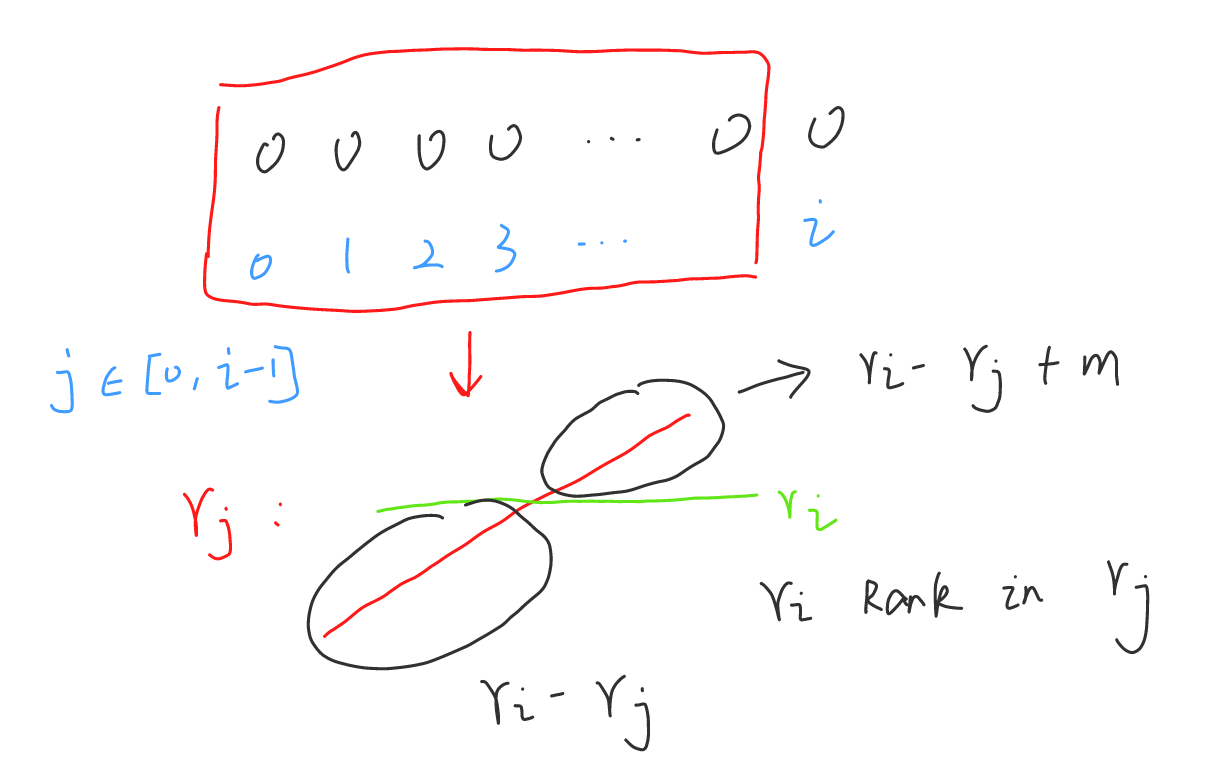 0 0 0 0 ... 0 0
0 1 2 3 ... i
j ∈ [0, i-1]
r_i - r_j + m
r_j :
r_i
r_i Rank in r_j
r_i - r_j